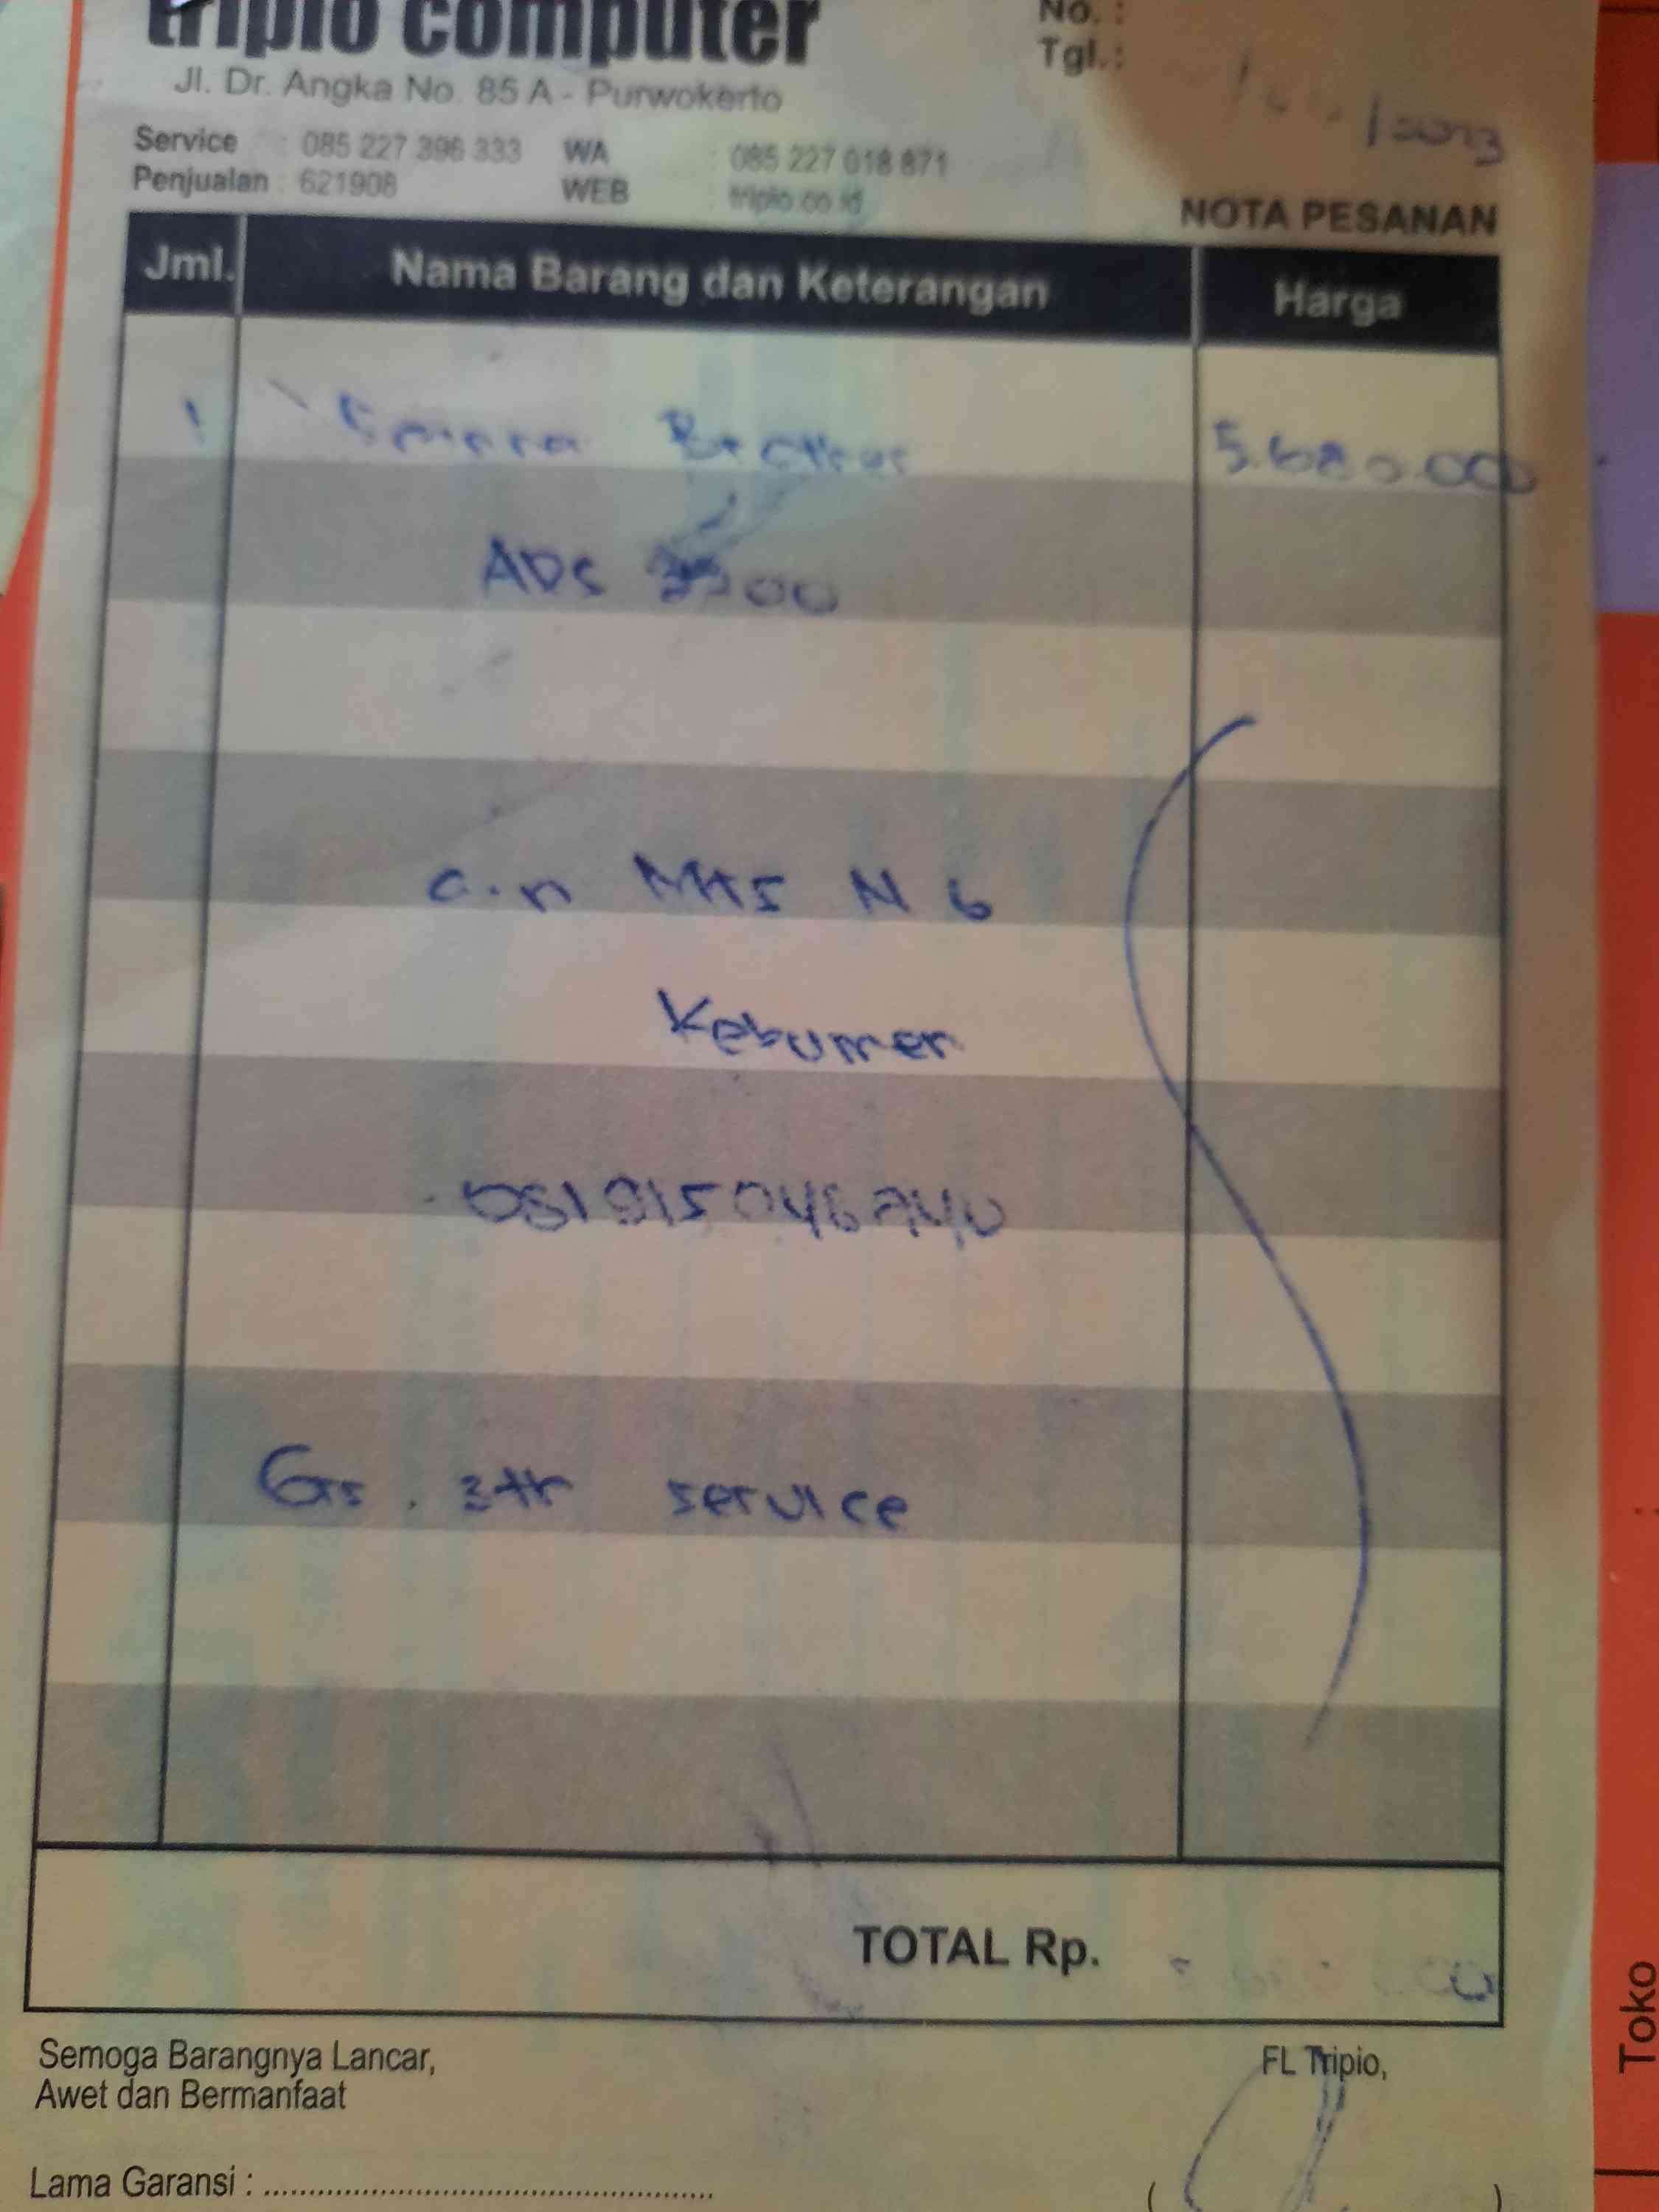 tripio computer
No. :
Tgl. :
Jl. Dr. Angka No. 85 A - Purwokerto
/2023
Service : 085 227 396 333 WA : 085 227 018 871
Penjualan : 621908 WEB : tripio.co.id
NOTA PESANAN
Jml. Nama Barang dan Keterangan Harga
1 Brother 5.680.000
ADS
a.n MTS N 6
Kebumen
Gs. 3th service
TOTAL Rp.
Semoga Barangnya Lancar,
Awet dan Bermanfaat
FL Tripio,
Lama Garansi :
( )
Toko